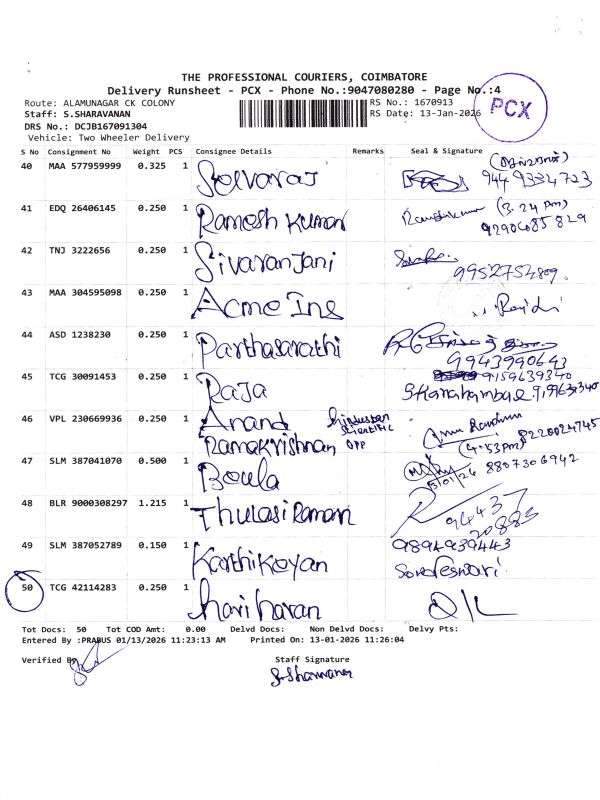 THE PROFESSIONAL COURIERS, COIMBATORE
Delivery Runsheet - PCX - Phone No.:9047080280 - Page No.:4
PCX
Route: ALAMUNAGAR CK COLONY
RS No.: 1670913
Staff: S.SHARAVANAN
RS Date: 13-Jan-2026
DRS No.: DCJB167091304
Vehicle: Two Wheeler Delivery
S No Consignment No Weight PCS Consignee Details Remarks Seal & Signature
40 MAA 577959999 0.325 1 Selvaraj
41 EDQ 26406145 0.250 1 Ramesh Kumar (3.24 pm)
9290685829
42 TNJ 3222656 0.250 1 Sivaranjani
9952754809
43 MAA 304595098 0.250 1 Acme Ins
44 ASD 1238230 0.250 1 Parthasarathi
9943990643
45 TCG 30091453 0.250 1 Raja 9159639340
46 VPL 230669936 0.250 1 Anand Ramakrishnan Hindustan Scientific OPP 8220024745
(4.53pm)
47 SLM 387041070 0.500 1 Boula 13/01/26 8807306942
48 BLR 9000308297 1.215 1 Thulasi Raman 94437
20883
49 SLM 387052789 0.150 1 Karthikeyan 9894939443
50 TCG 42114283 0.250 1 hari haran
Tot Docs: 50 Tot COD Amt: 0.00 Delvd Docs: Non Delvd Docs: Delvy Pts:
Entered By :PRABUS 01/13/2026 11:23:13 AM Printed On: 13-01-2026 11:26:04
Verified By
Staff Signature
S. Sharavanan